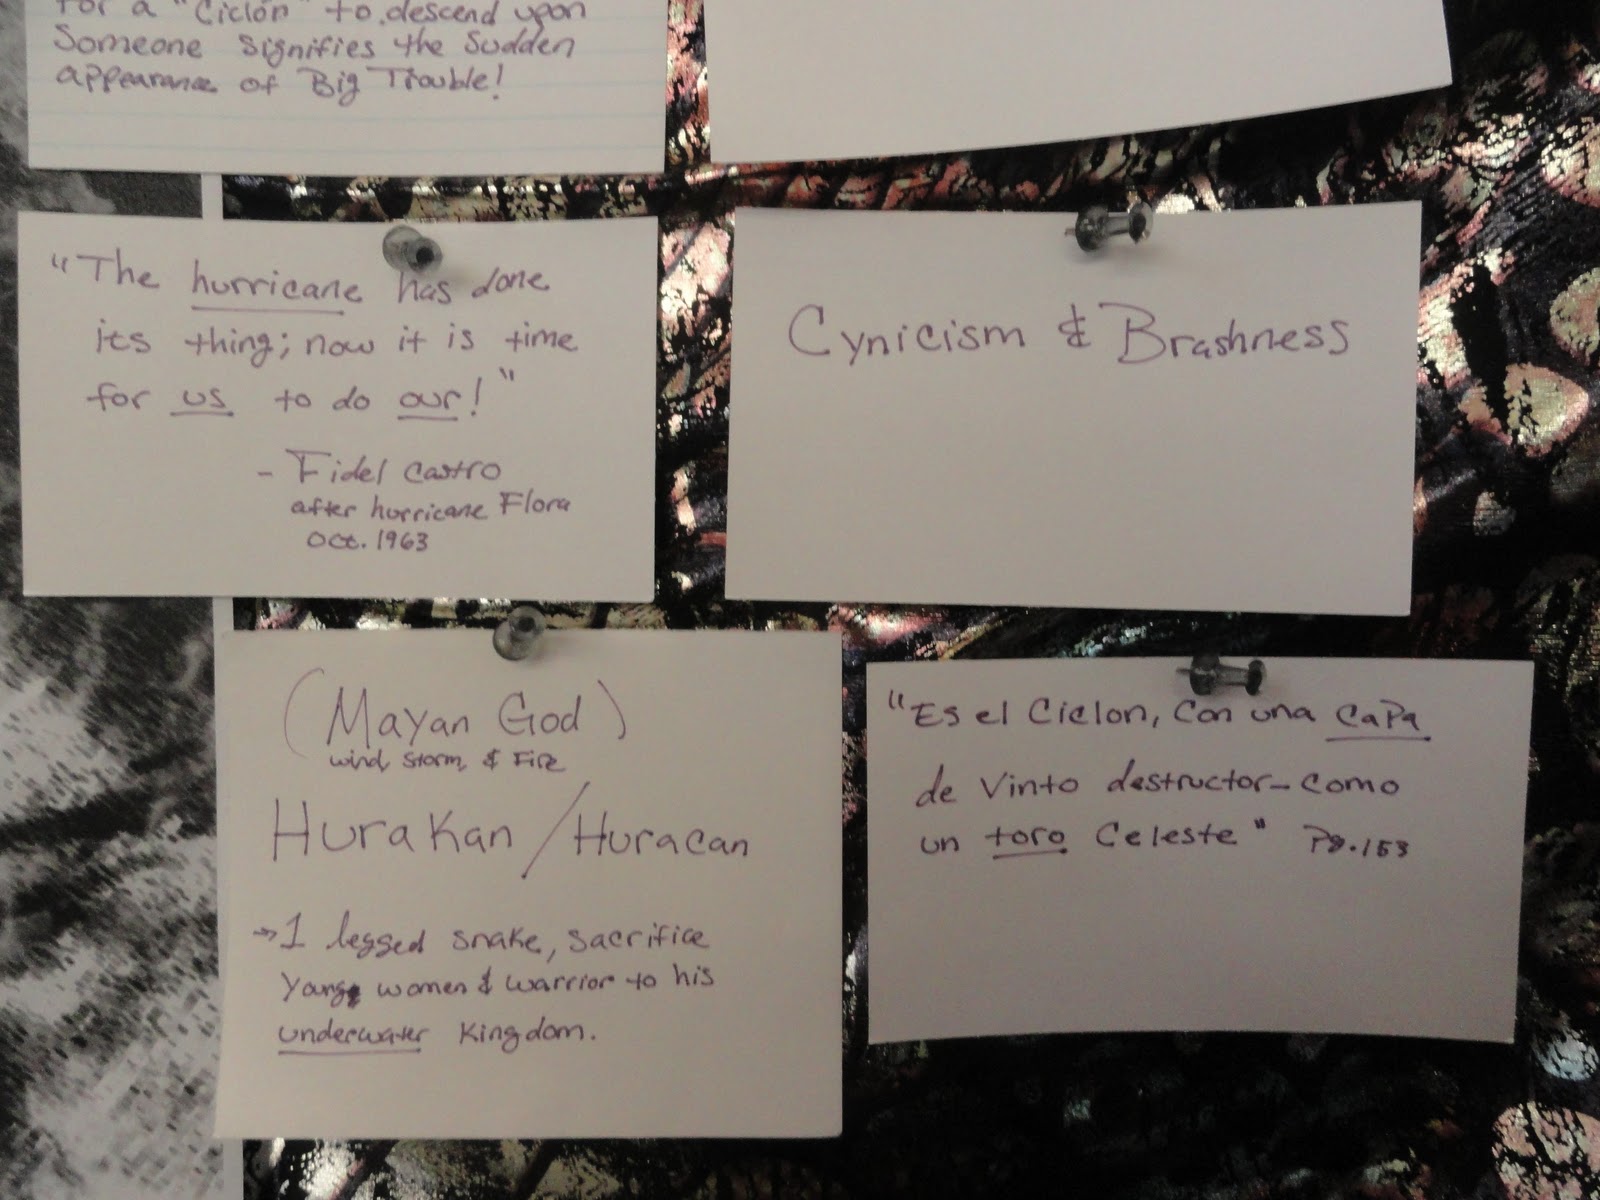 for a "Ciclón" to descend upon
Someone signifies the Sudden
appearance of Big Trouble!
"The hurricane has done
its thing; now it is time
for us to do our!"
- Fidel Castro
after hurricane Flora
Oct. 1963
Cynicism & Brashness
(Mayan God)
wind, Storm, & Fire
Hurakan/Huracan
→ 1 legged snake, sacrifice
Young women & warrior to his
underwater Kingdom.
"Es el Ciclon, Con una CaPa
de Vinto destructor-como
un toro Celeste" Pg.153